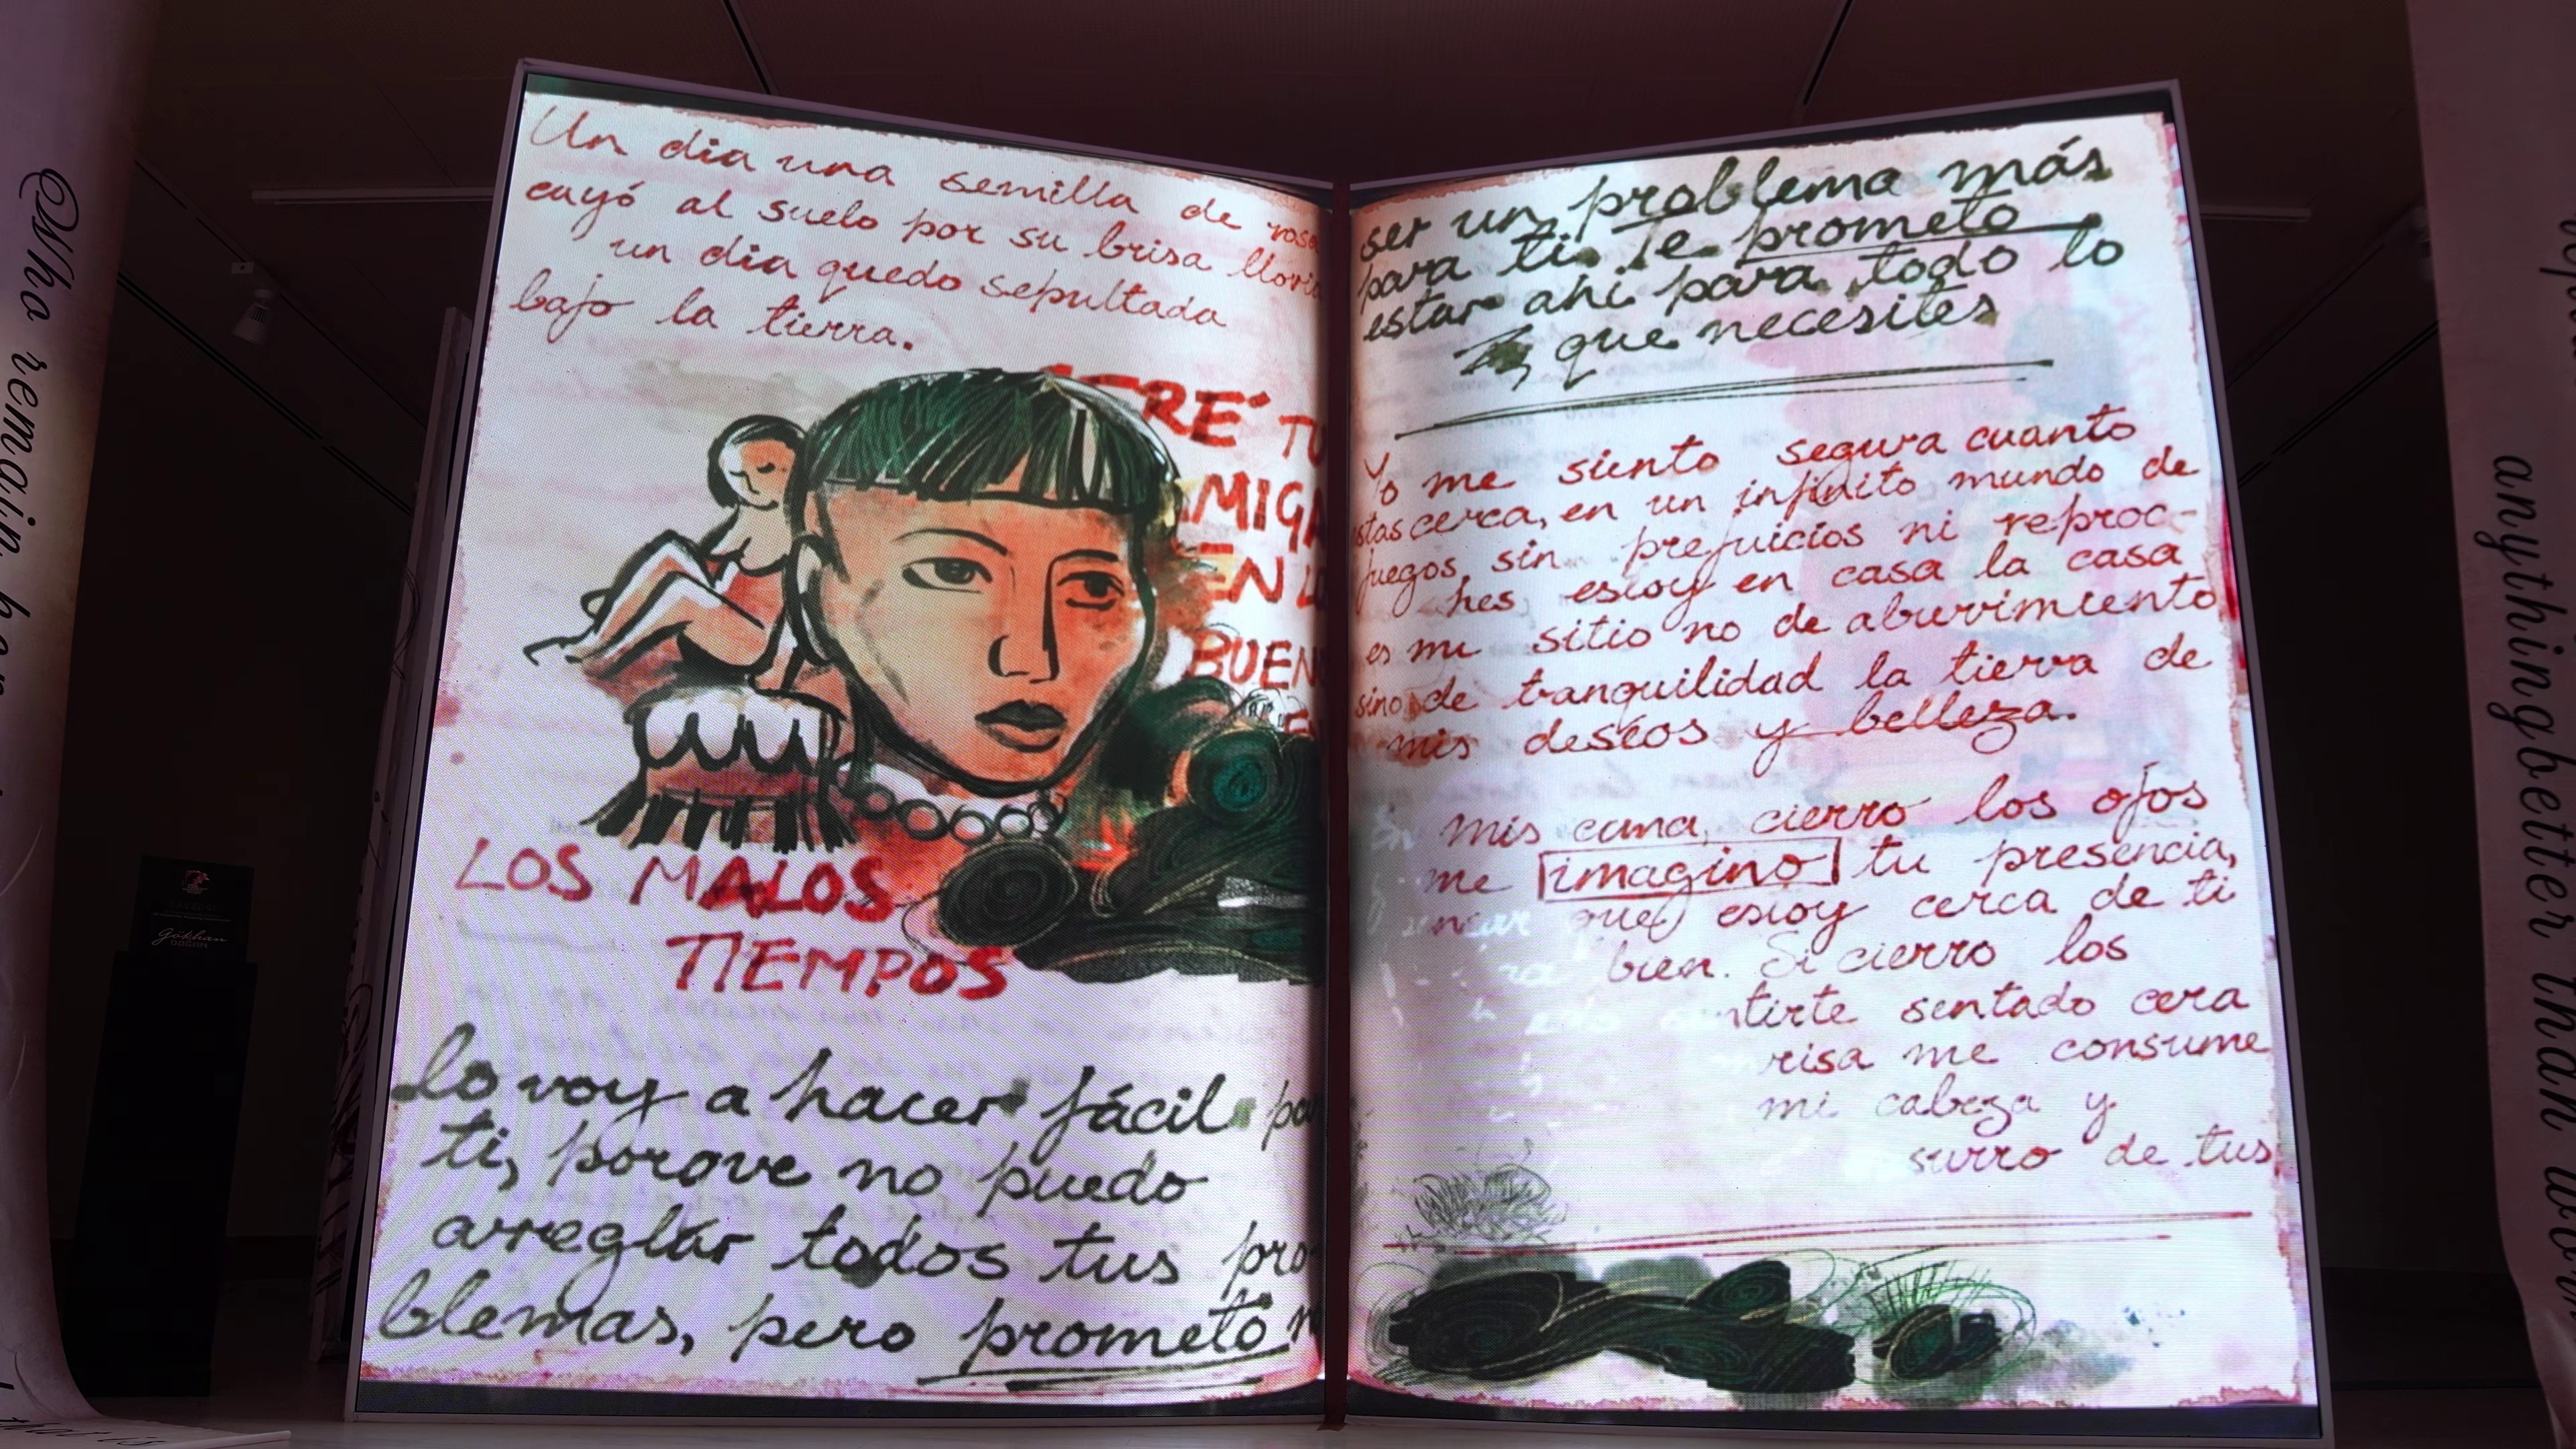 Un dia una semilla de rosa
cayó al suelo por su brisa
un dia quedo sepultada
bajo la tierra.
TU
EN
LOS MALOS
TIEMPOS
lo voy a hacer fácil
ti, porque no puedo
arreglar todos tus pro
blemas, pero prometo
ser un problema más
para ti. Te prometo
estar ahi para todo lo
que necesites
Yo me siento segura cuanto
estas cerca, en un infinito mundo de
juegos sin prejuicios ni reproc-
hes estoy en casa la casa
es mi sitio no de aburrimiento
sino de tranquilidad la tierra de
mis deseos y belleza.
mis cama, cierro los ojos
me imagino tu presencia,
que estoy cerca de ti
bien. Si cierro los
sentado cera
risa me consume
mi cabeza y
surro de tus
Who remain
anythingbetter than
Gökhan
DOĞAN
that is